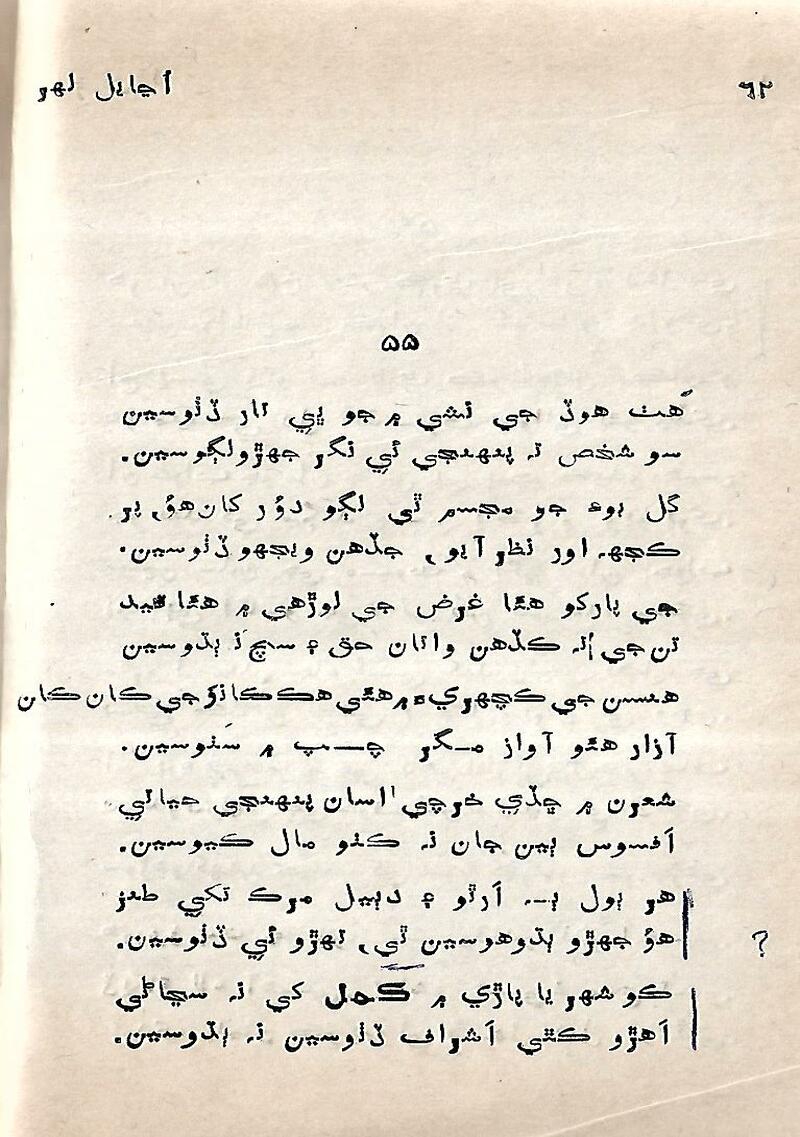 ۶۲ اڃايل لهر
۵۵
هٿ هوڏ جي نشي ۾ جو ڀي تار ڏٺوسين
سو شخص نہ پنهنجي ئي نگر جهڙو لڳوسين.
گل ٻوءِ جو مجسم ٿي لڳو دؤر کان هوُ، پر
ڪجھہ اور نظر آيو، جڏهن ويجهو ڏٺوسين.
جي پارکو هئا غرض جي لوڙهي ۾ هئا قيد
تن جي اُتہ ڪڏهن واتان حق ۽ سچ نہ ٻڌوسين
هنسن جي ڪچهريءَ ۾ هئي هڪ ڪانوَ جي ڪان ڪان
آزار هئو آواز مگر چپ ۾ سَٺوسين.
شعرن ۾ ڇڏي خرچي اسان پنهنجي حياتي
اَفسوس ٻين جان نہ ڪٺو مال ڪيوسين.
هر ٻول ٻہ اَرٿو ۽ دٻيل مرڪ تکي طنز
هوُ جهڙو ٻڌو هوسين ٿي، تهڙو ئي ڏٺوسين.
?
ڪو شهر يا پاڙي ۾ ڪمل کي نہ سڃاڻي
اَهڙو ڪٿي اَشراف ڏٺوسين نہ ٻڌوسين.